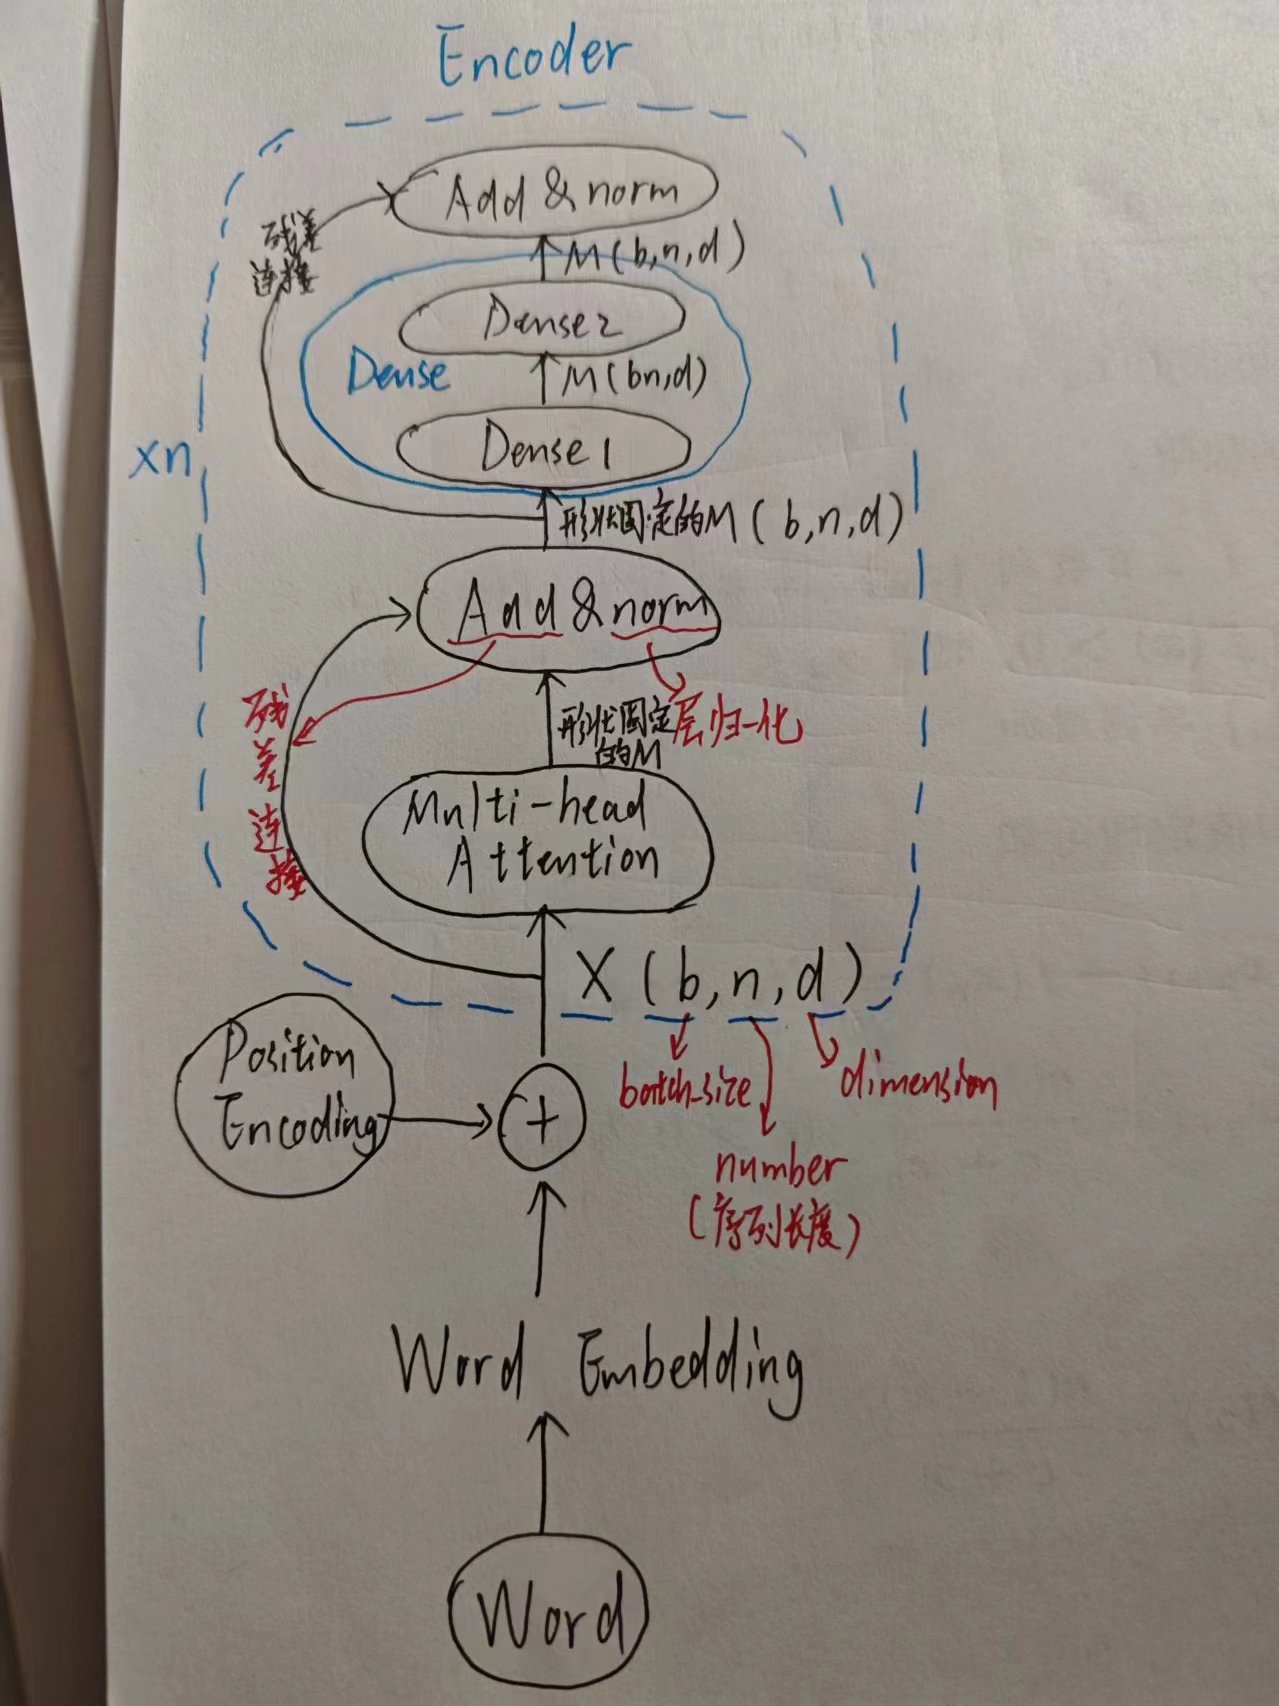 Encoder
Add & norm
残差
连接
M(b,n,d)
Dense2
Dense
M(bn,d)
Dense1
xn
形状固定的M(b,n,d)
Add & norm
残差连接
形状固定
的M
层归一化
Multi-head
Attention
X(b,n,d)
Position
Encoding
+
batch_size
dimension
number
(序列长度)
Word Embedding
Word